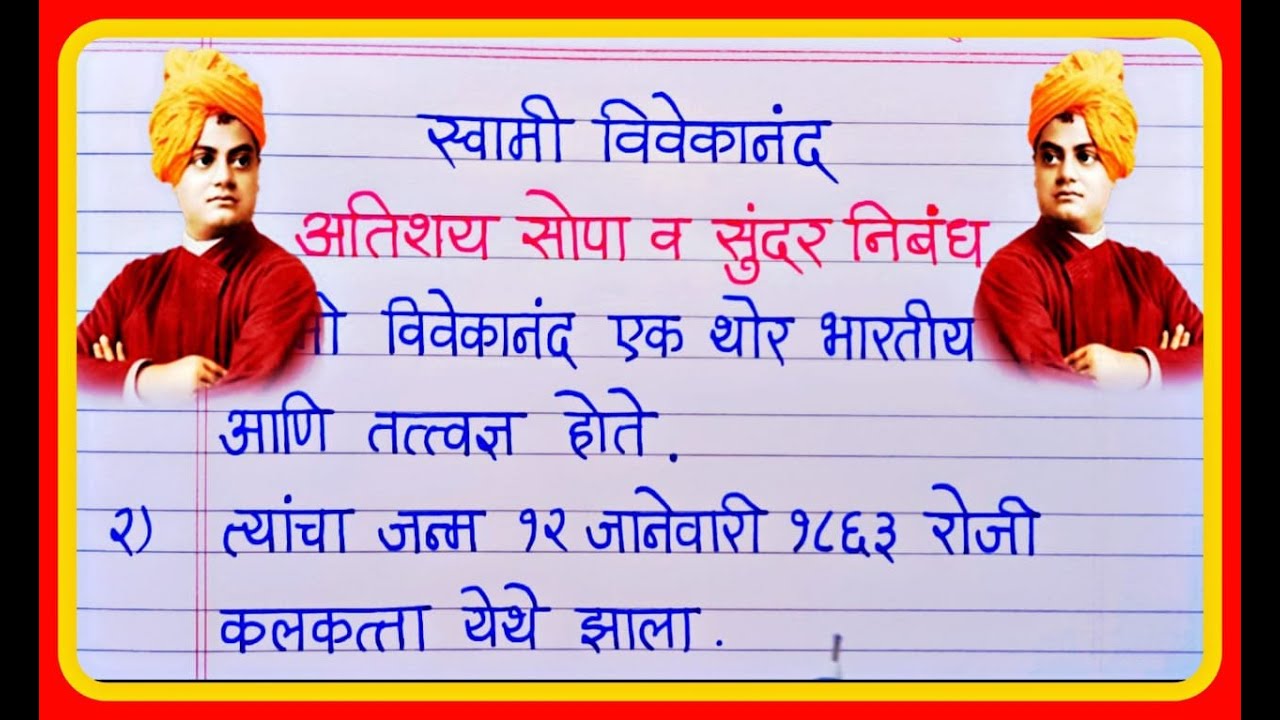 स्वामी विवेकानंद
अतिशय सोपा व सुंदर निबंध
विवेकानंद एक थोर भारतीय
आणि तत्त्वज्ञ होते.
२) त्यांचा जन्म १२ जानेवारी १८६३ रोजी
कलकत्ता येथे झाला.